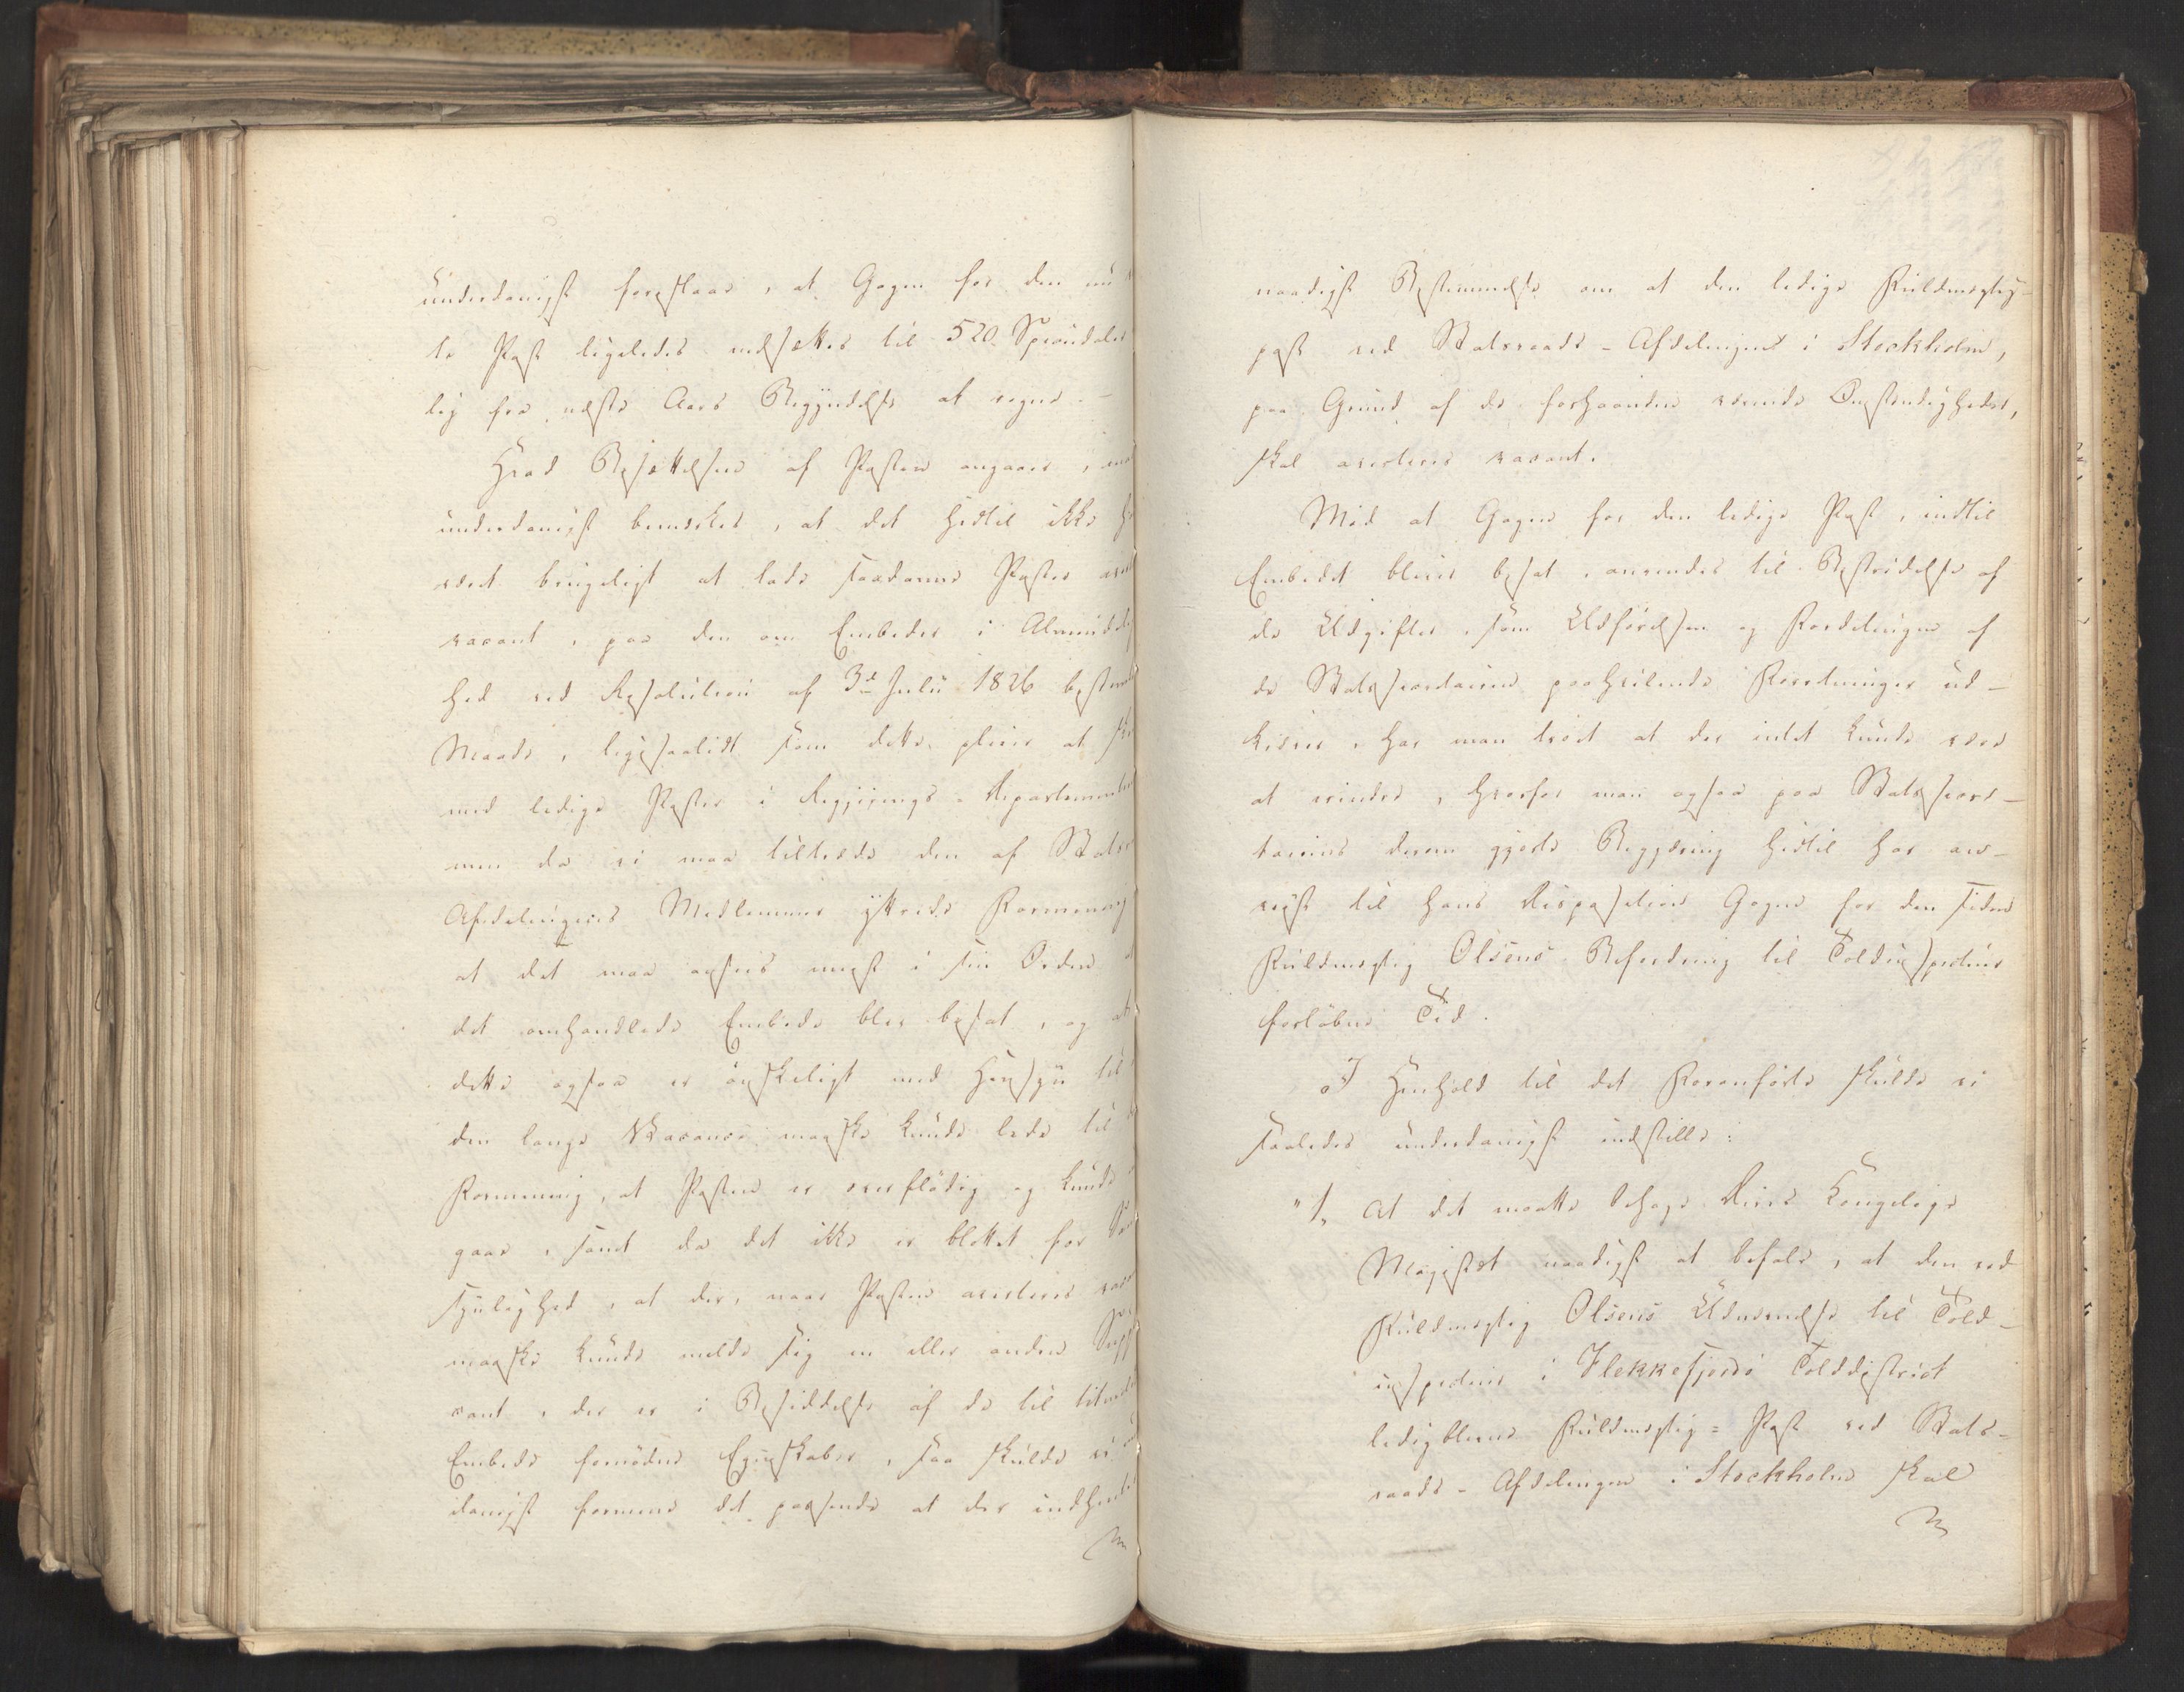 underdanigst foreslaae, at Gagen for den
te Post ligeledes nedsættes til 520 Speciedaler
lig fra næste Aars Begyndelse at regne. –
Hvad Besættelsen af Posten angaaer,
underdanigst bemærkes, at det hidtil ikke
været brugeligt at lade saadanne Poster
vacant, paa den om Embeder i Almindelig
hed ved Resolution af 3d Julii 1826 bestemte
Maade, ligesaalidt som dette pleier at
med ledige Poster i Regjerings-Departementer
men da vi maa tiltræde den af Stats
Afdelingens Medlemmer yttrede Formening
at det maa ansees meest i sin Orden
det omhandlede Embede bliver besat, og at
dette ogsaa er ønskeligt med Hensyn til
den lange Vacance maaske kunde lede til
Formening, at Posten er overflødig og kunde
gaae, samt da det ikke er blottet for
synlighed, at der, naar Posten averteres
maaske kunde melde sig en eller anden
cant, der er i Besiddelse af de til
Embede fornødne Egenskaber, saa skulde vi
danigst formene det passende at der indhentes
naadigst Bestemmelse om at den ledige Fuldmægtig-
post ved Statsraads-Afdelingen i Stockholm,
paa Grund af de forhaanden værende Omstændigheder,
skal averteres vacant.
Mod at Gagen for den ledige Post, indtil
Embedet bliver besat, anvendes til Bestridelse af
de Udgifter, som Udførelsen og Fordelingen af
de Statssecretairen paahvilende Forretninger ud-
kræver, har man troet at der intet kunde være
at erindre, hvorfor man ogsaa paa Statssecre-
tairens derom gjorte Begjæring hidtil har an-
viist til hans Disposition Gagen for den siden
Fuldmægtig Olsens Befordring til Toldinspecteur
forløbne Tid.
I Henhold til det Foranførte skulde vi
saaledes underdanigst indstille:
"1, At det maatte behage Deres Kongelige
Majestæt naadigst at befale, at den ved
Fuldmægtig Olsens Udnævnelse til Told-
inspecteur i Flekkefjords Tolddistrict
ledigblevne Fuldmægtig-Post ved Stats-
raads-Afdelingen i Stockholm skal